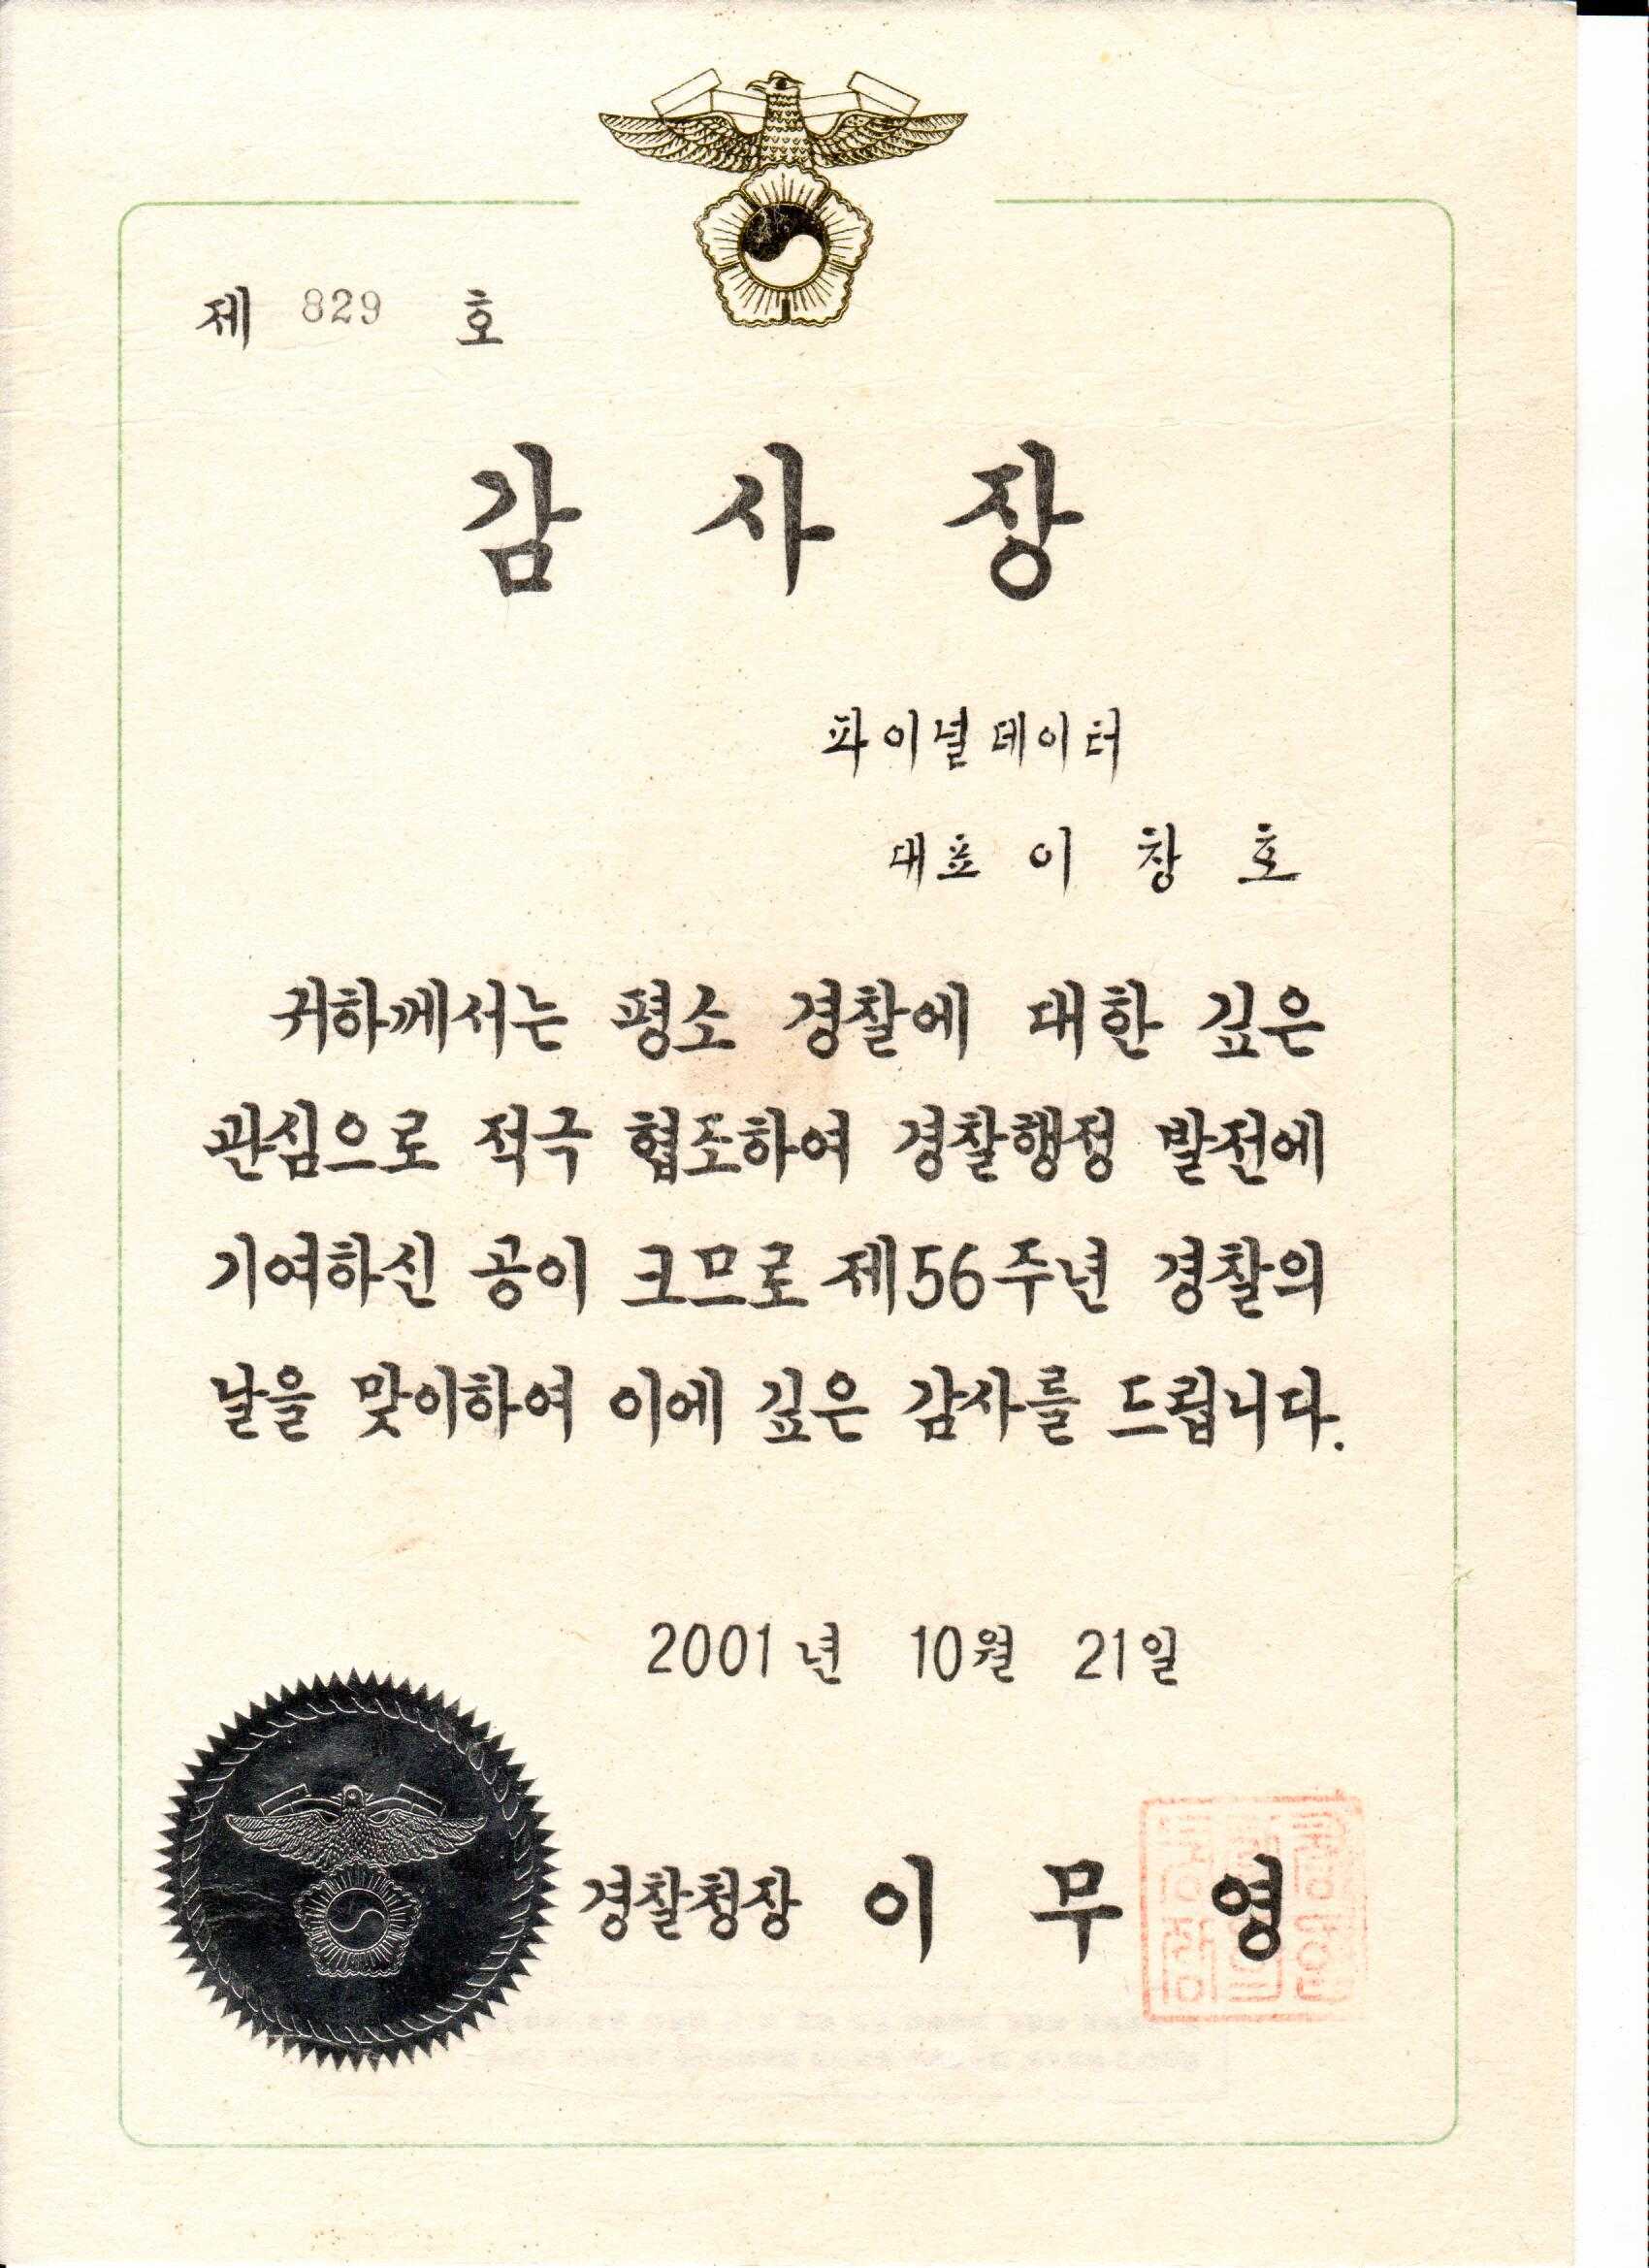 제 829 호
감 사 장
파이널데이터
대표 이 창 호
귀하께서는 평소 경찰에 대한 깊은
관심으로 적극 협조하여 경찰행정 발전에
기여하신 공이 크므로 제56주년 경찰의
날을 맞이하여 이에 깊은 감사를 드립니다.
2001년 10월 21일
경찰청장 이 무 영